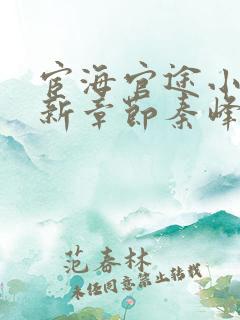 宦海官途小
新章节秦峰
范春林
未经同意禁止转载